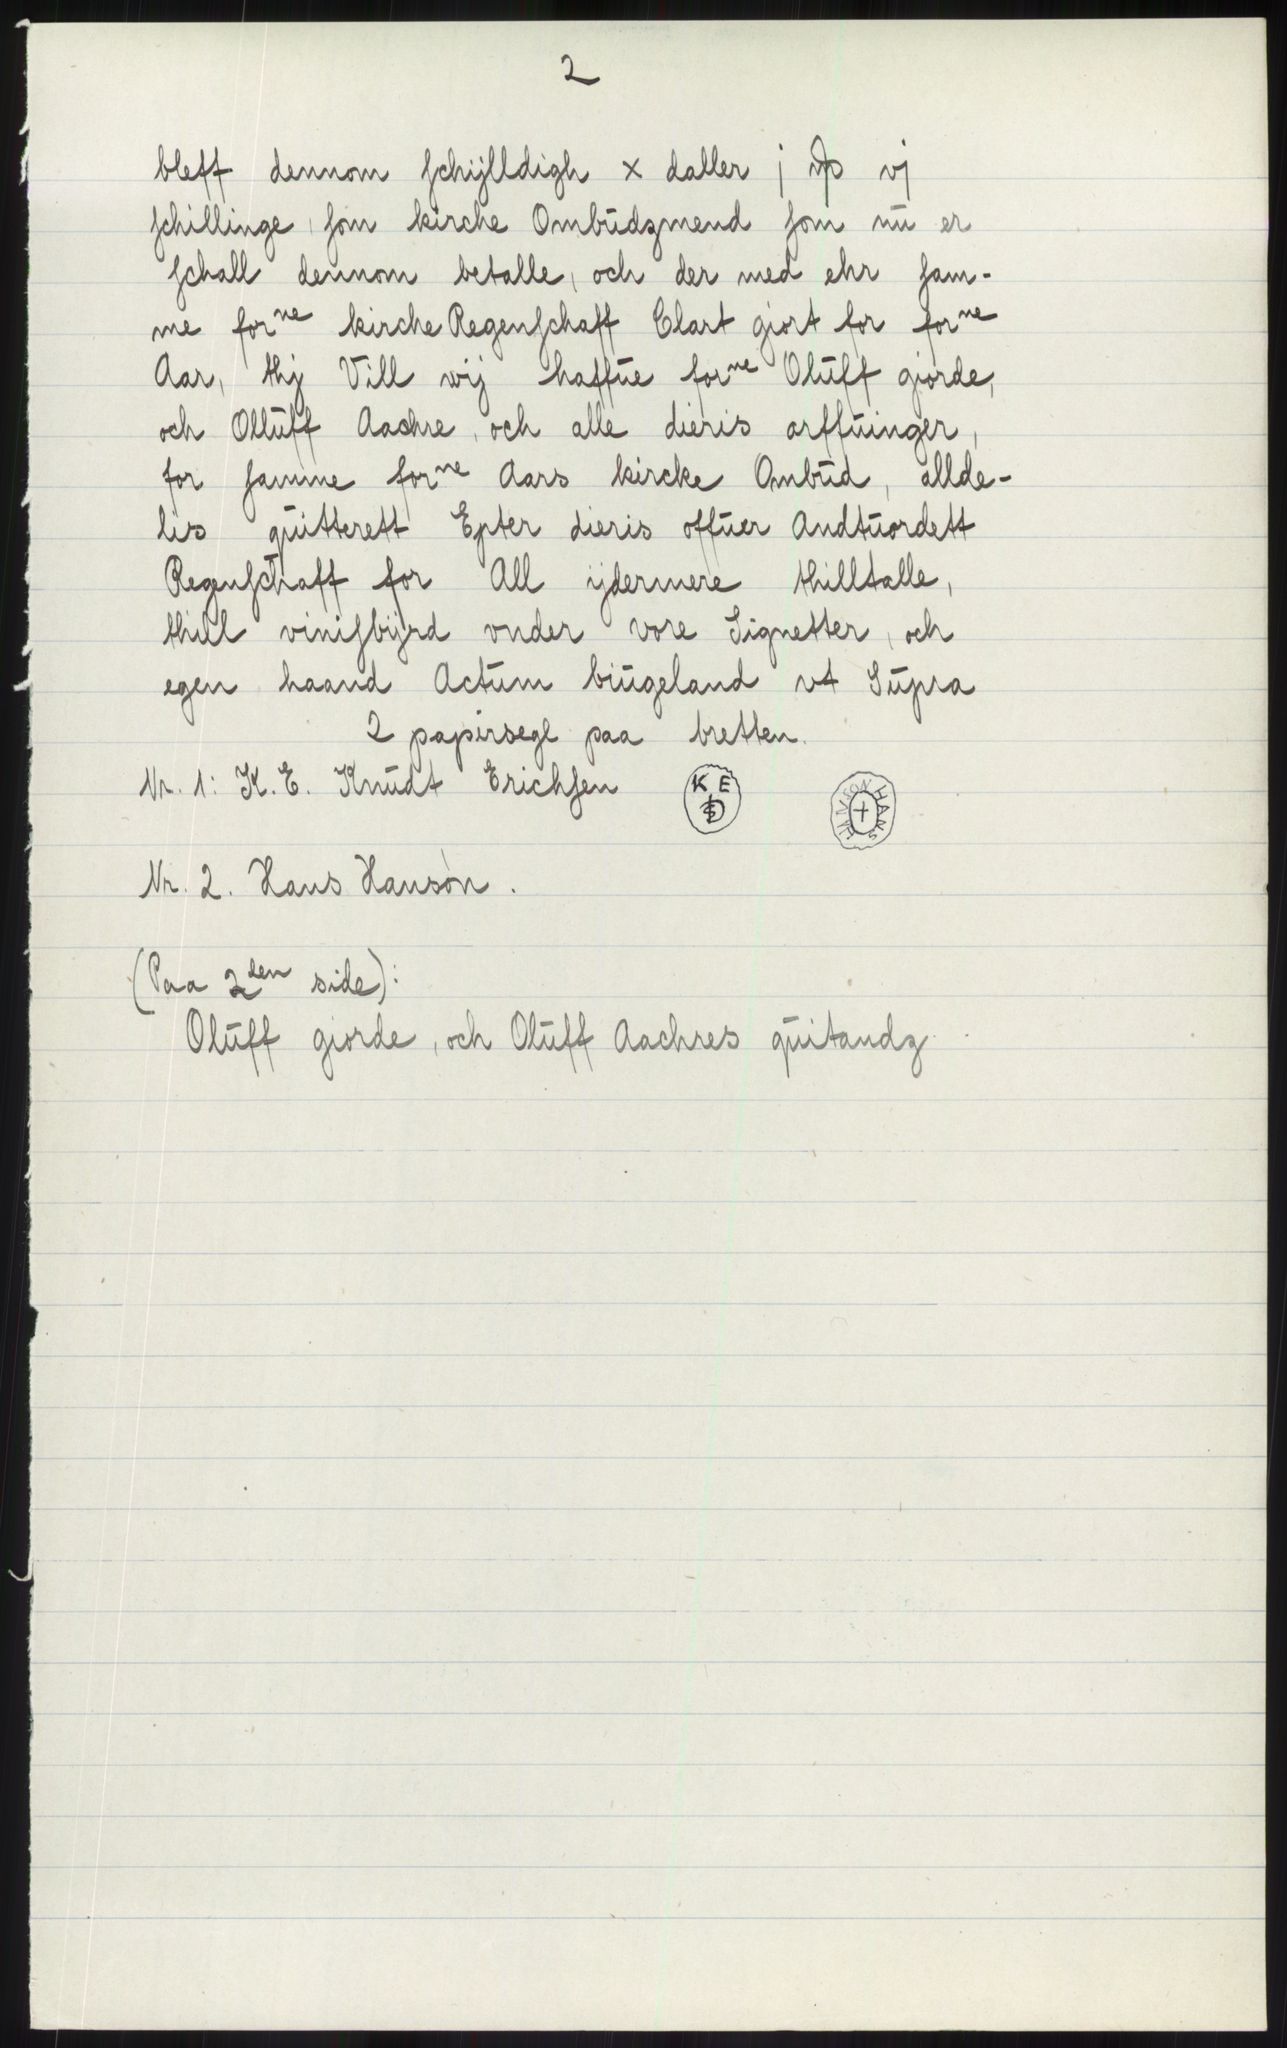 2
bleff dennom ſchÿlldigh x daller j vj
ſchillinge, ſom kirche Ombŭdzmend ſom nŭ er
ſchall dennom betalle, och der med ehr ſam-
me forⁿᵉ kirche Regenſchaff Clart giort for forⁿᵉ
Aar, thj Vill wij haffŭe forⁿᵉ Olŭff giorde,
och Ollŭff Aachre, och alle dieris arffŭinger,
for ſamme forⁿᵉ Aars kircke Ombŭd, allde-
lis qŭitterett Epter dieris offŭer Andtŭordett
Regenſchaff for All ijdermere thilltalle,
thill viniſbÿrd vnder vore Signetter, och
egen haand Actŭm biŭgeland vt Sŭpra
2 papirsegl paa bretten.
Nr. 1: K. E. Knŭdt Erichſen
K E
HANS HANSON
Nr. 2. Hans Hansøn.
(Paa 2den side):
Olŭff giorde, och Olŭff Aachres qŭitandz